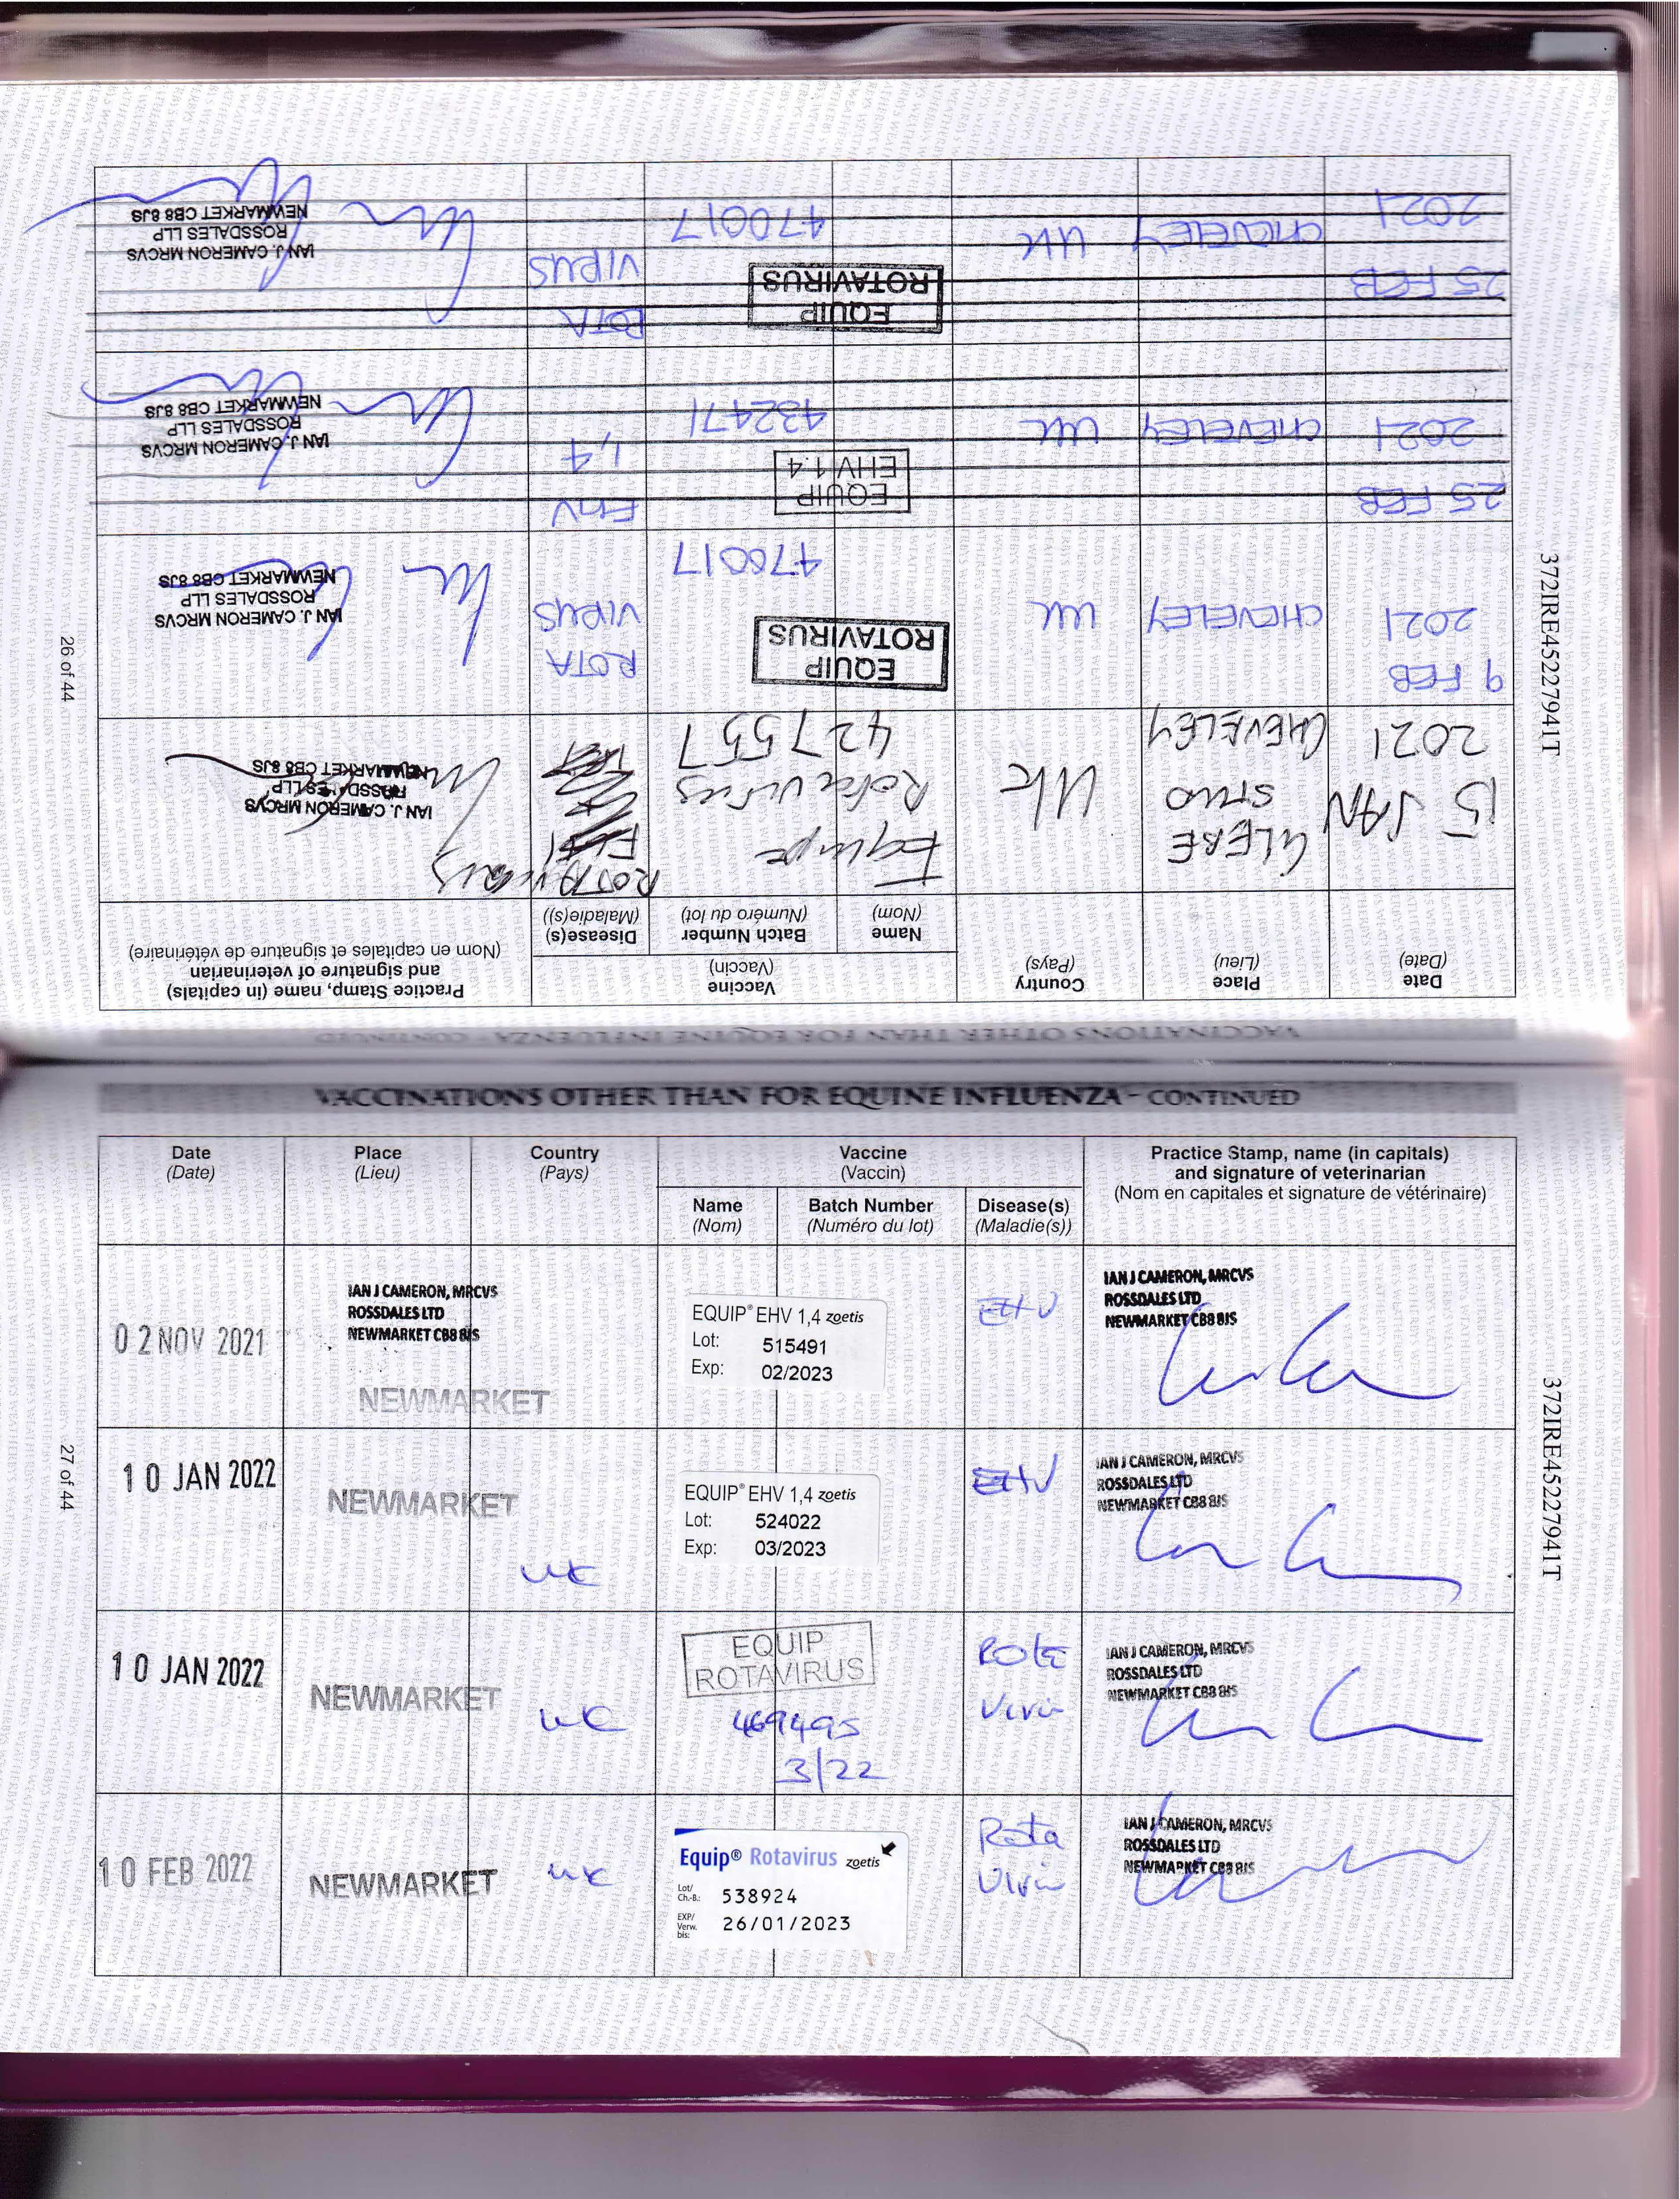 VACCINATIONS OTHER THAN FOR EQUINE INFLUENZA - CONTINUED
Date Place Country Vaccine Practice Stamp, name (in capitals)
(Date) (Lieu) (Pays) (Vaccin) and signature of veterinarian
(Nom en capitales et signature de vétérinaire)
Name Batch Number Disease(s)
(Nom) (Numéro du lot) (Maladie(s))
15 JAN
2021
GLEBE
STUD
CHEVELEY
UK
Equip
Rotavirus
427557
ROTAVIRUS
IAN J. CAMERON MRCVS
ROSSDALES LLP
NEWMARKET CB8 8JS
9 FEB
2021
CHEVELEY
UK
EQUIP
ROTAVIRUS
470017
ROTA
VIRUS
IAN J. CAMERON MRCVS
ROSSDALES LLP
NEWMARKET CB8 8JS
25 FEB
2021
CHEVELEY
UK
EQUIP
EHV 1.4
432471
EHV
1,4
IAN J. CAMERON MRCVS
ROSSDALES LLP
NEWMARKET CB8 8JS
25 FEB
2021
CHEVELEY
UK
EQUIP
ROTAVIRUS
470017
ROTA
VIRUS
IAN J. CAMERON MRCVS
ROSSDALES LLP
NEWMARKET CB8 8JS
26 of 44
372IRE45227941T
VACCINATIONS OTHER THAN FOR EQUINE INFLUENZA - CONTINUED
Date Place Country Vaccine Practice Stamp, name (in capitals)
(Date) (Lieu) (Pays) (Vaccin) and signature of veterinarian
(Nom en capitales et signature de vétérinaire)
Name Batch Number Disease(s)
(Nom) (Numéro du lot) (Maladie(s))
02 NOV 2021
IAN J CAMERON, MRCVS
ROSSDALES LTD
NEWMARKET CB8 8JS
NEWMARKET
EQUIP® EHV 1,4 zoetis
Lot: 515491
Exp: 02/2023
EHV
IAN J CAMERON, MRCVS
ROSSDALES LTD
NEWMARKET CB8 8JS
10 JAN 2022
NEWMARKET
UK
EQUIP® EHV 1,4 zoetis
Lot: 524022
Exp: 03/2023
EHV
IAN J CAMERON, MRCVS
ROSSDALES LTD
NEWMARKET CB8 8JS
10 JAN 2022
NEWMARKET
UK
EQUIP
ROTAVIRUS
469495
3/22
Rota
Virus
IAN J CAMERON, MRCVS
ROSSDALES LTD
NEWMARKET CB8 8JS
10 FEB 2022
NEWMARKET
UK
Equip® Rotavirus zoetis
Lot/
Ch.-B.: 538924
EXP/
Verw.
bis: 26/01/2023
Rota
Virus
IAN J CAMERON, MRCVS
ROSSDALES LTD
NEWMARKET CB8 8JS
27 of 44
372IRE45227941T